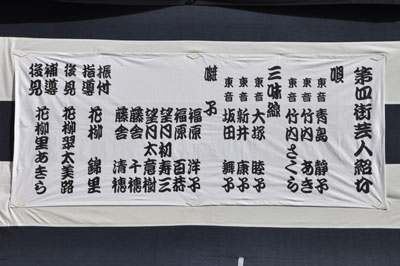 第四街芸人紹介
唄
東音 青島 静子
東音 竹内 あき
東音 竹内さくら
三味線
東音 大塚 睦子
東音 新井 康子
東音 坂田 舞子
囃子
福原 洋子
福原 百恭
望月初寿三
望月太意樹
藤舎 千穂
藤舎 清穂
振付
指導 花柳 錦里
後見 花柳翠太美路
補導
後見 花柳里あきら